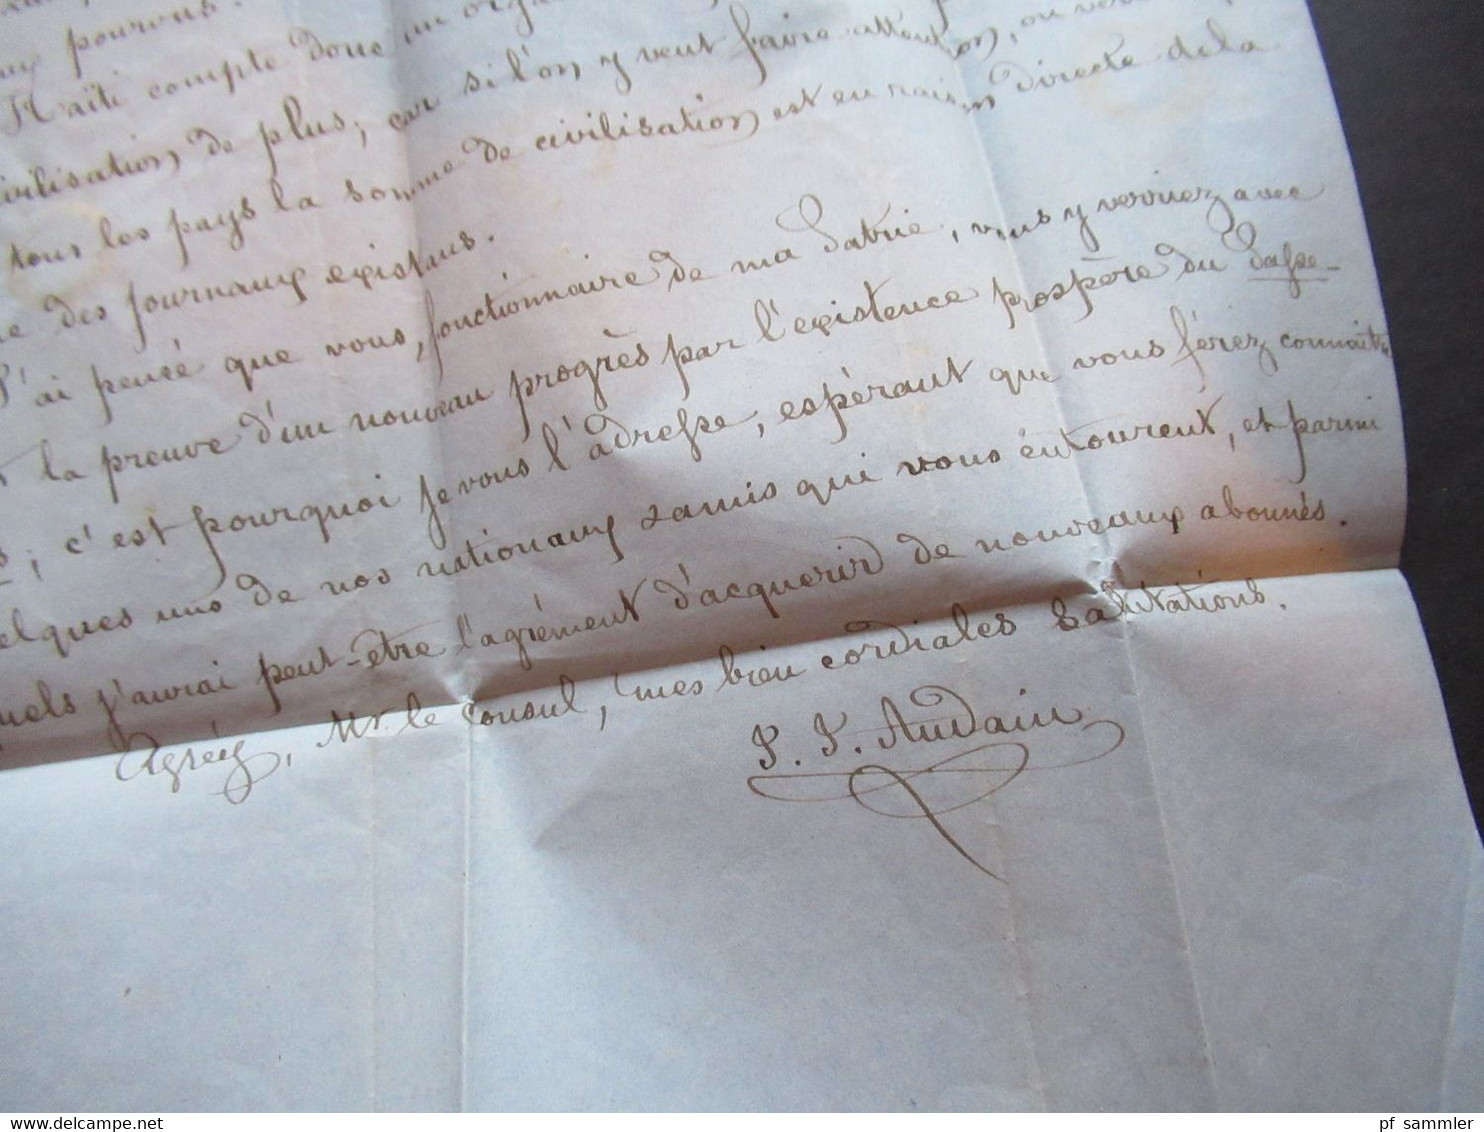 pourons.
Haïti compte donc un orga
civilisation de plus, car si l'on y veut faire attention, on verra
tous les pays la somme de civilisation est en raison directe de la
des journaux existans.
J'ai pensé que vous, fonctionnaire de ma Patrie, vous y verriez avec
la preuve d'un nouveau progrès par l'existence prospère du Passe-
c'est pourquoi je vous l'adresse, espérant que vous férez connaître
quelques uns de nos nationaux & amis qui vous entourent, et parmi
quels j'aurai peut-être l'agrément d'acquérir de nouveaux abonnés.
Agréez, Mr. le Consul, mes bien cordiales salutations.
J. J. Audain
pf_sammler